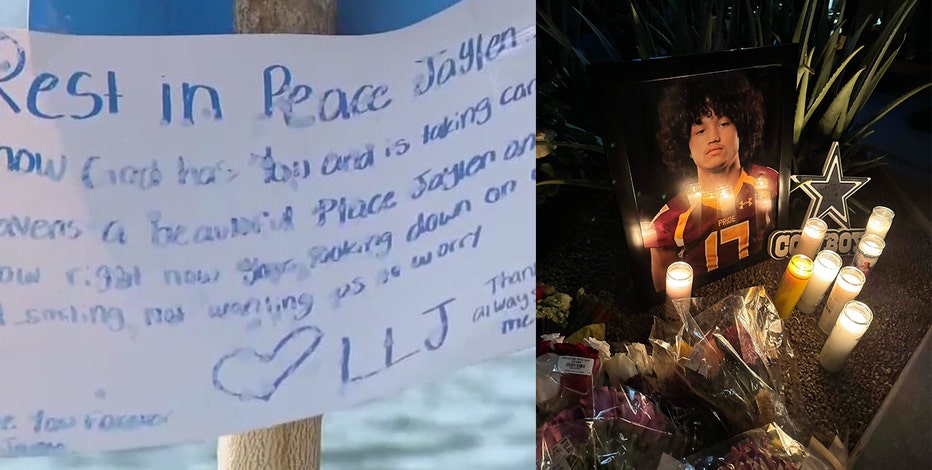 Rest in Peace Jaylen
now God has you and is taking car
avens a beautiful Place Jaylen an
ow right now your looking down on
smiling not wanting us to worry
Than
always
me
LLJ
Love You Forever
PRIDE
17
COWBOY